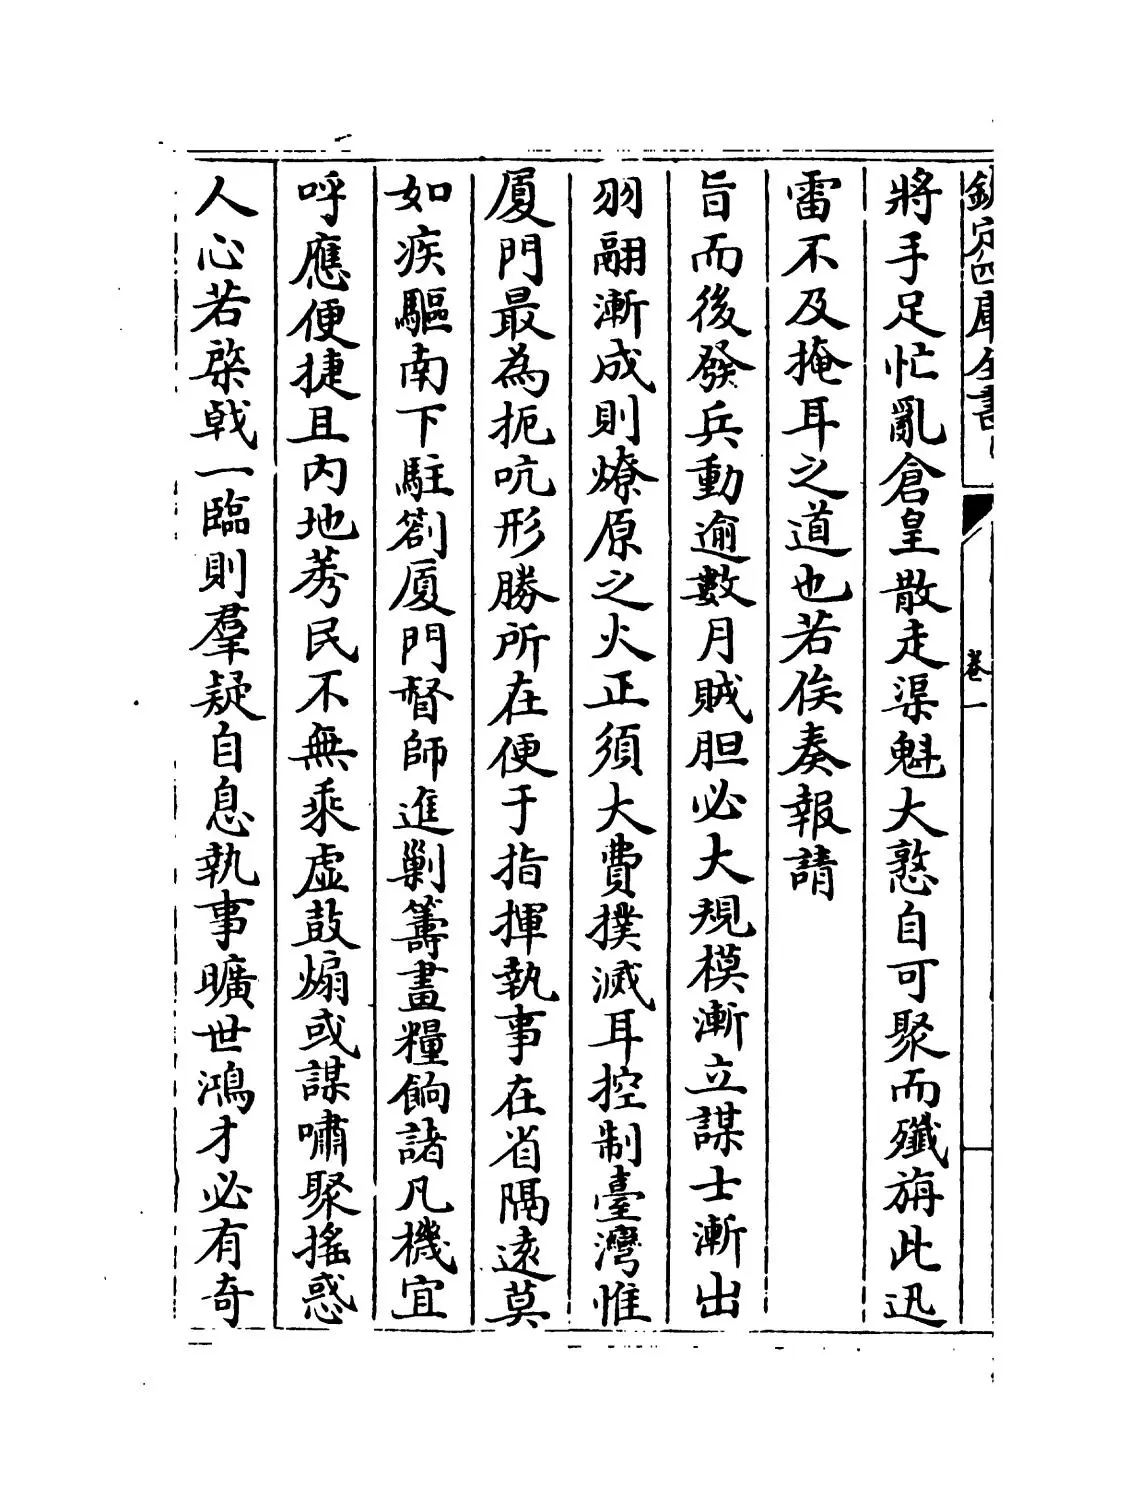 欽定四庫全書
卷一
將手足忙亂倉皇散走渠魁大憝自可聚而殲旃此迅
雷不及掩耳之道也若俟奏報請
旨而後發兵動逾數月賊胆必大規模漸立謀士漸出
羽翮漸成則燎原之火正須大費撲滅耳控制臺灣惟
厦門最為扼吭形勝所在便于指揮執事在省隔遠莫
如疾驅南下駐劄厦門督師進剿籌畫糧餉諸凡機宜
呼應便捷且内地莠民不無乘虛鼓煽或謀嘯聚搖惑
人心若棨戟一臨則羣疑自息執事曠世鴻才必有奇